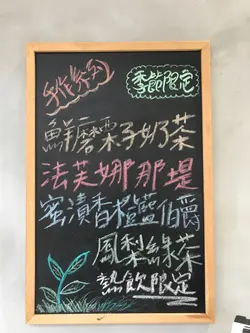 手作
季節限定
鮮磨栗子奶茶
法芙娜那堤
蜜漬香橙藍伯爵
鳳梨綠茶
熱飲限定